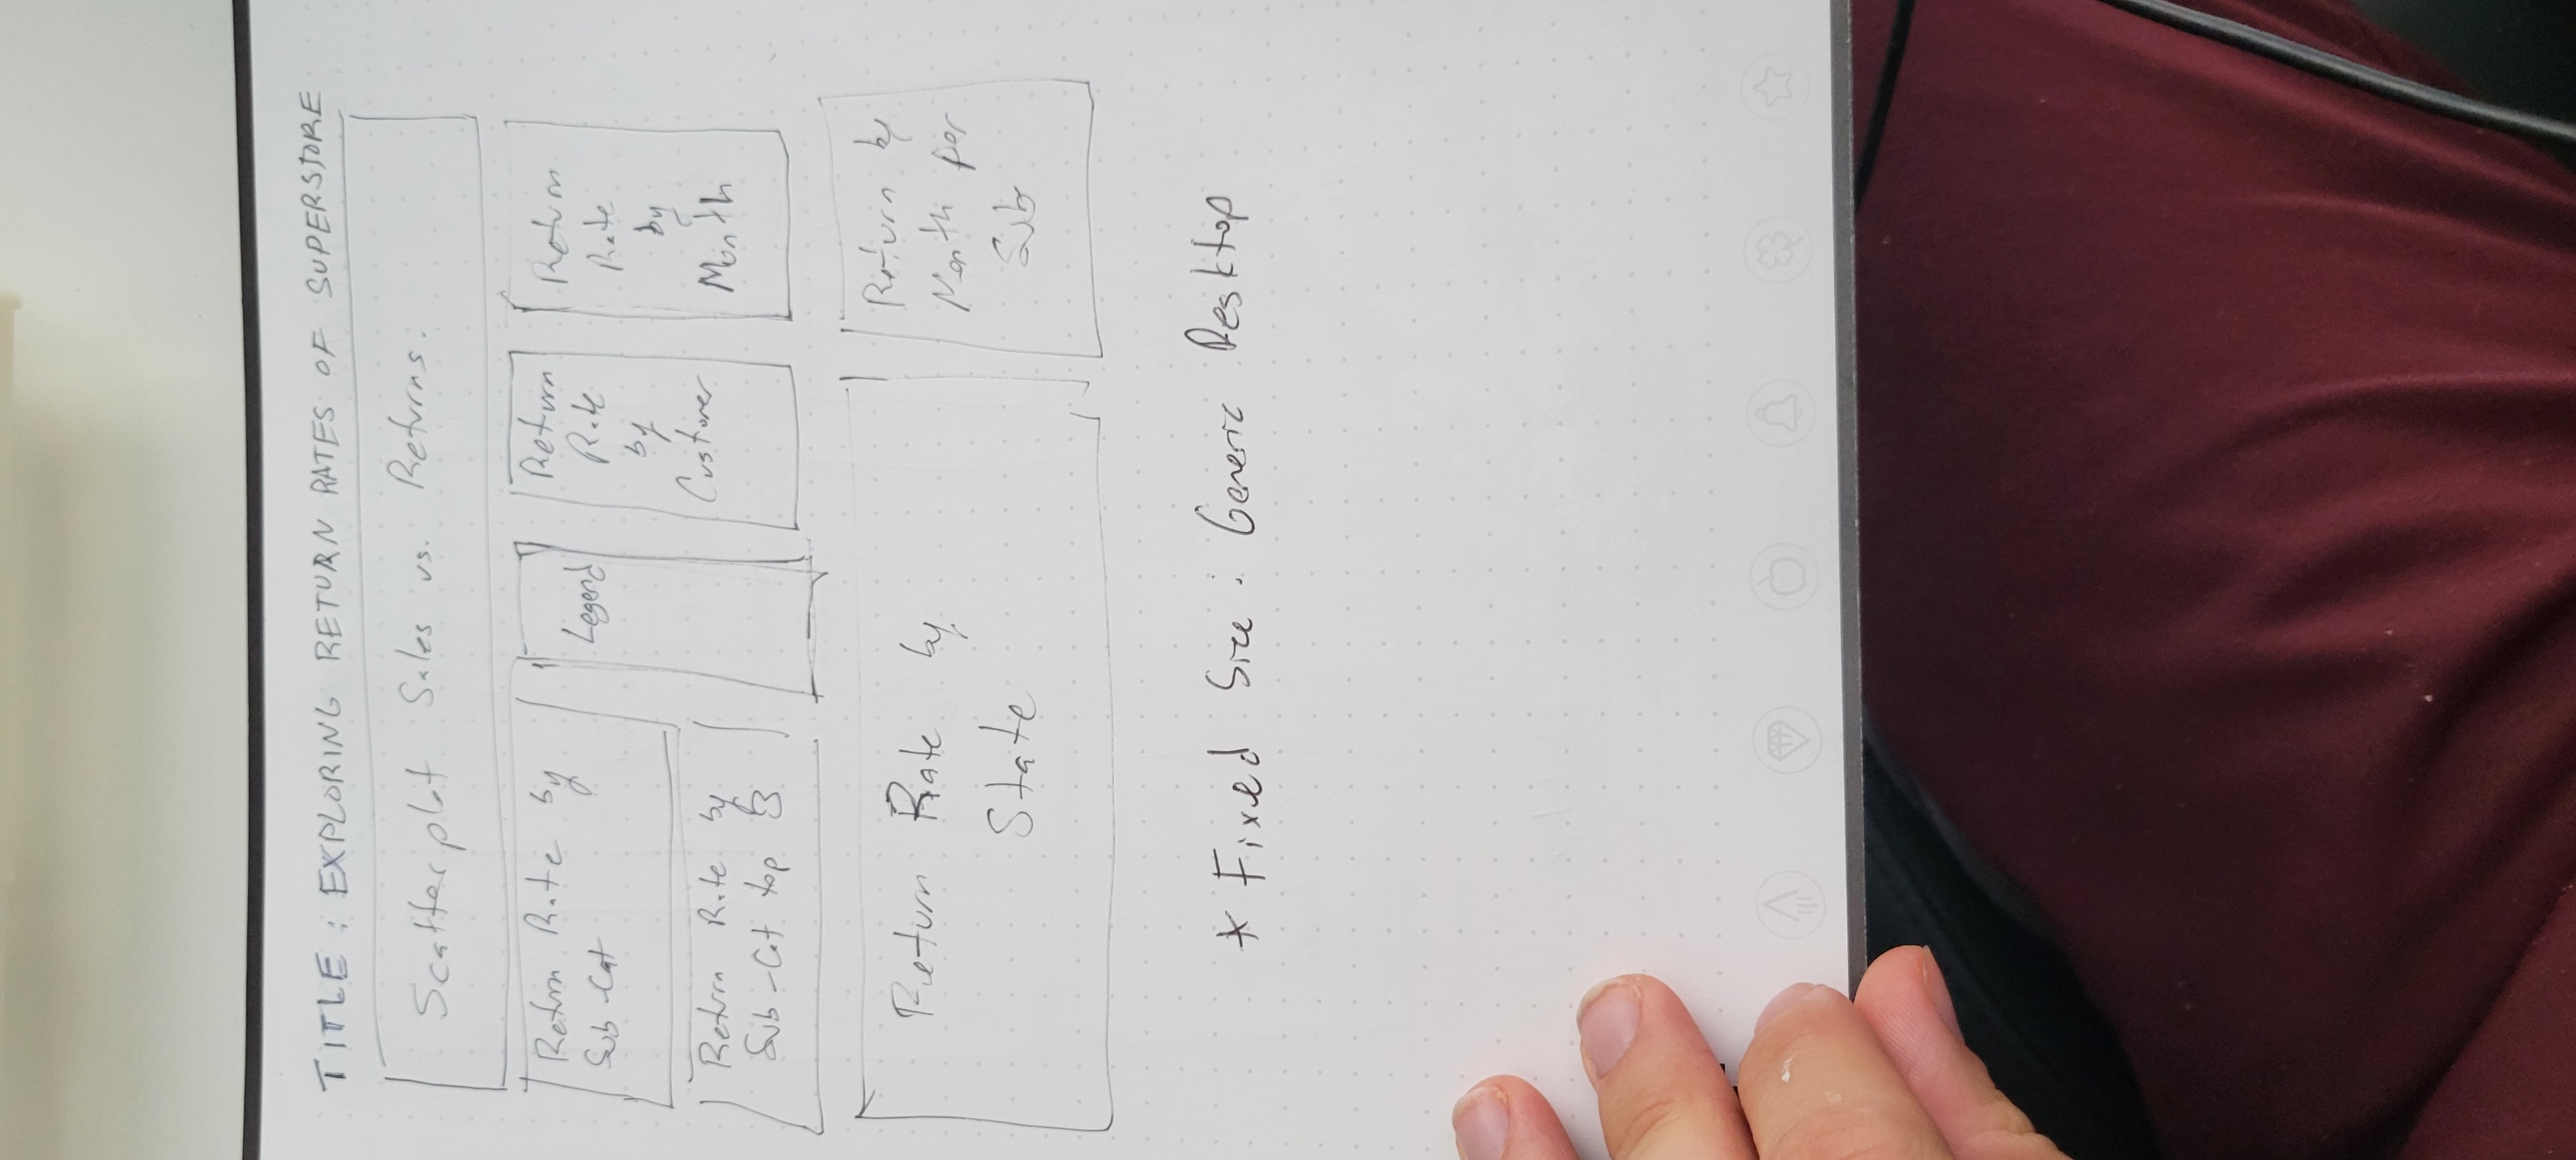 TITLE : EXPLORING RETURN RATES OF SUPERSTORE
Scatterplot Sales vs. Returns.
Return Rate by
Sub-Cat
Return Rate by
Sub-Cat top 3
Legend
Return
Rate
by
Customer
Return
Rate
by
Month
Return Rate by
State
Return by
Month per
Sub
* Fixed Size : Generic Desktop